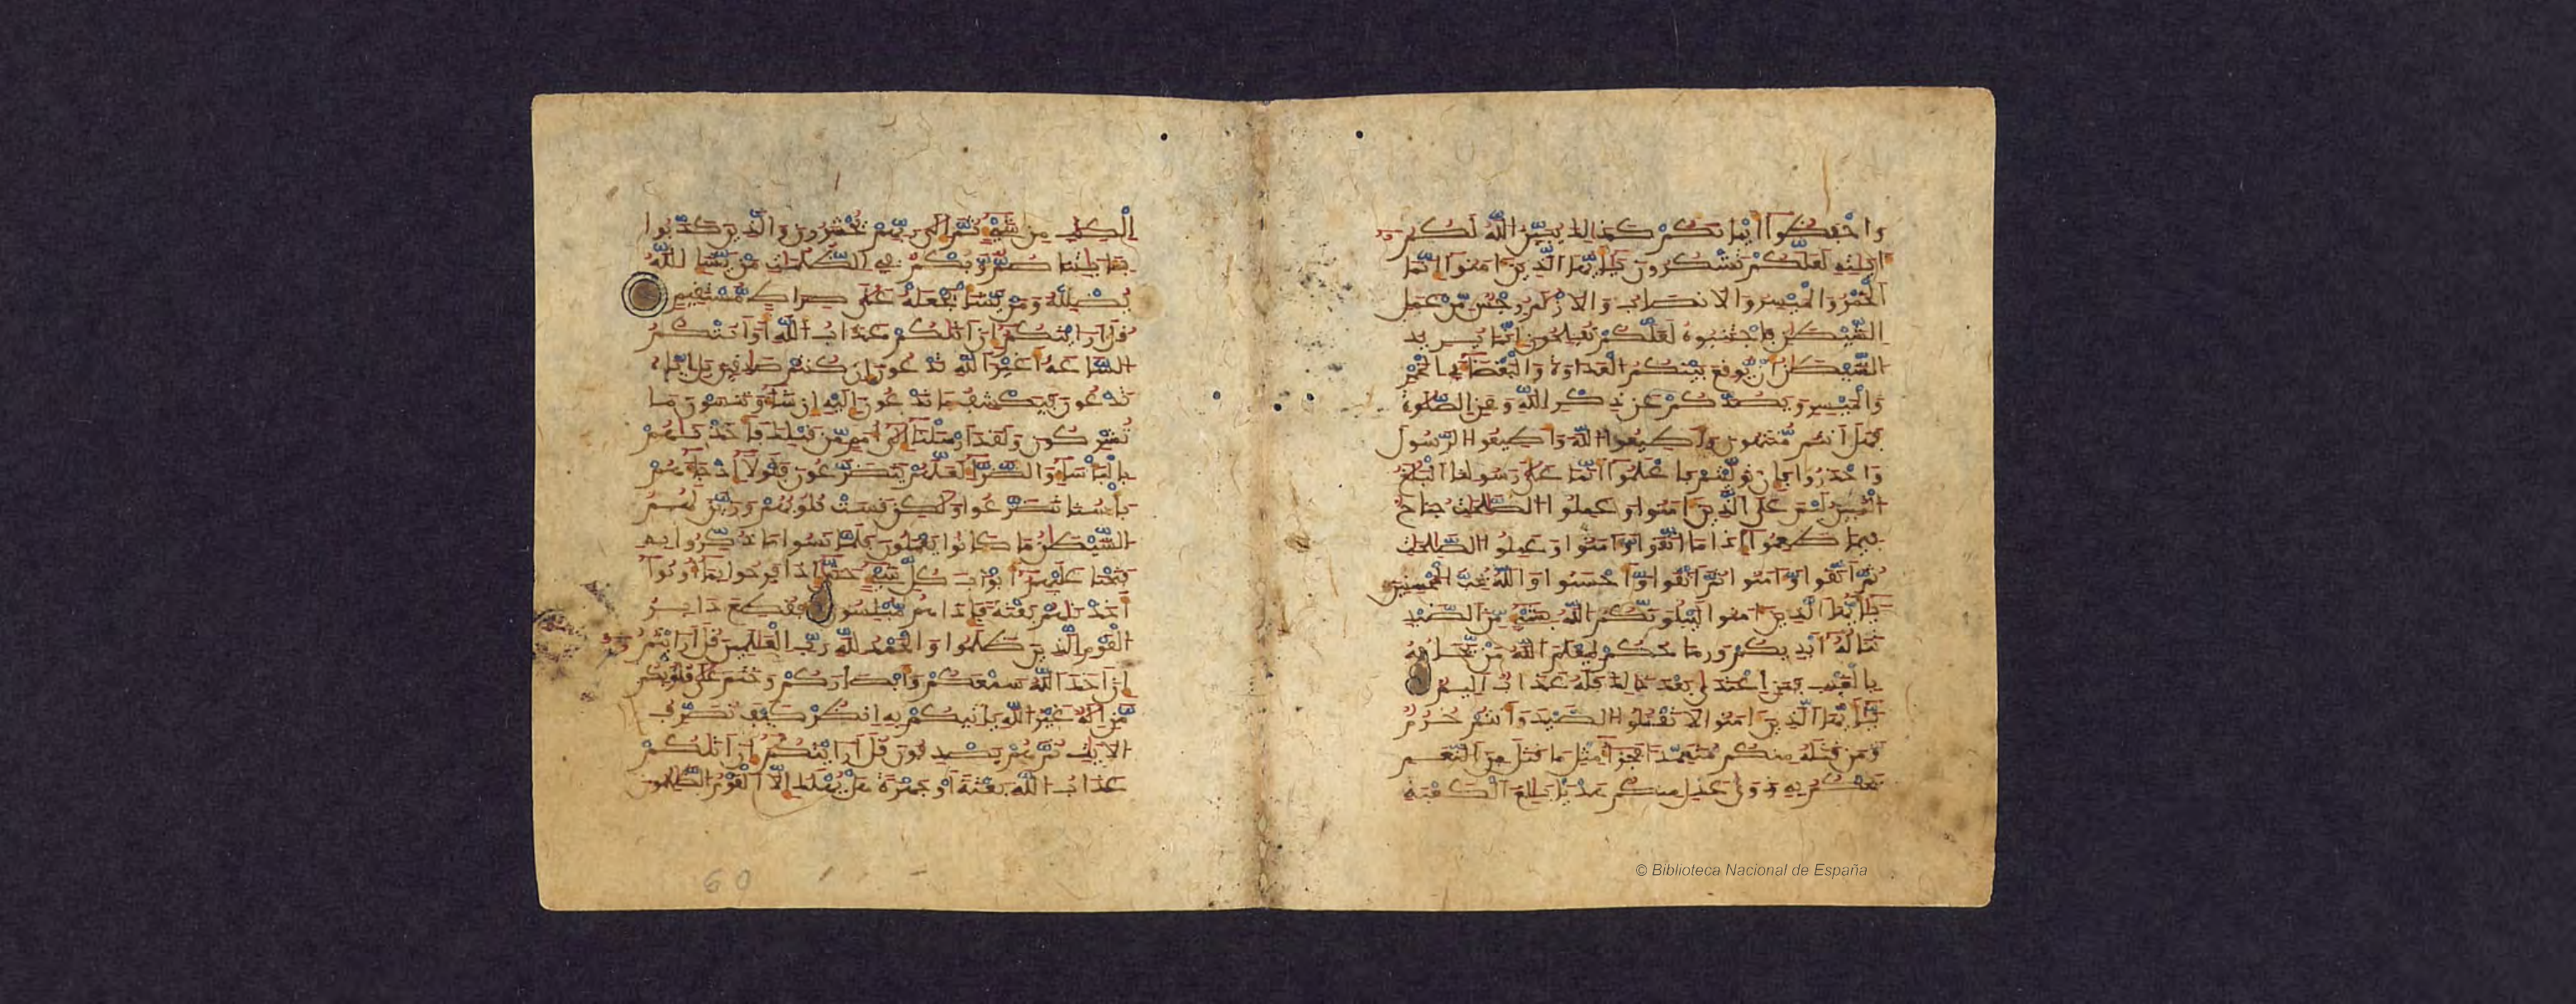 واحفظوا أيمانكم كذلك يبين الله لكم
ءايته لعلكم تشكرون يأيها الذين ءامنوا إنما
الخمر والميسر والانصاب والازلم رجس من عمل
الشيطن فاجتنبوه لعلكم تفلحون إنما يريد
الشيطن أن يوقع بينكم العداوة والبغضاء في الخمر
والميسر ويصدكم عن ذكر الله وعن الصلوة
فهل أنتم منتهون وأطيعوا الله وأطيعوا الرسول
واحذروا فإن توليتم فاعلموا أنما على رسولنا البلغ
المبين ليس على الذين ءامنوا وعملوا الصلحت جناح
فيما طعموا إذا ما اتقوا وءامنوا وعملوا الصلحت
ثم اتقوا وءامنوا ثم اتقوا وأحسنوا والله يحب المحسنين
يأيها الذين ءامنوا ليبلونكم الله بشيء من الصيد
تناله أيديكم ورماحكم ليعلم الله من يخافه
بالغيب فمن اعتدى بعد ذلك فله عذاب أليم
يأيها الذين ءامنوا لا تقتلوا الصيد وأنتم حرم
ومن قتله منكم متعمدا فجزاء مثل ما قتل من النعم
يحكم به ذوا عدل منكم هديا بلغ الكعبة
© Biblioteca Nacional de España
الكتب من شيء ثم إلى ربهم يحشرون والذين كذبوا
بـايتنا صم وبكم في الظلمت من يشإ الله
يضلله ومن يشأ يجعله على صراط مستقيم
قل أرايتكم إن أتكم عذاب الله أو أتتكم
الساعة أغير الله تدعون إن كنتم صدقين بل إياه
تدعون فيكشف ما تدعون إليه إن شاء وتنسون ما
تشركون ولقد أرسلنا إلى أمم من قبلك فأخذنهم
بالبأساء والضراء لعلهم يتضرعون فلولا إذ جاءهم
بأسنا تضرعوا ولكن قست قلوبهم وزين لهم
الشيطن ما كانوا يعملون فلما نسوا ما ذكروا به
فتحنا عليهم أبوب كل شيء حتى إذا فرحوا بما أوتوا
أخذنهم بغتة فإذا هم مبلسون فقطع دابر
القوم الذين ظلموا والحمد لله رب العلمين قل أرايتم
إن أخذ الله سمعكم وأبصاركم وختم على قلوبكم
من إله غير الله يأتيكم به انظر كيف نصرف
الايت ثم هم يصدفون قل أرايتكم إن أتكم
عذاب الله بغتة أو جهرة هل يهلك إلا القوم الظلمون
60